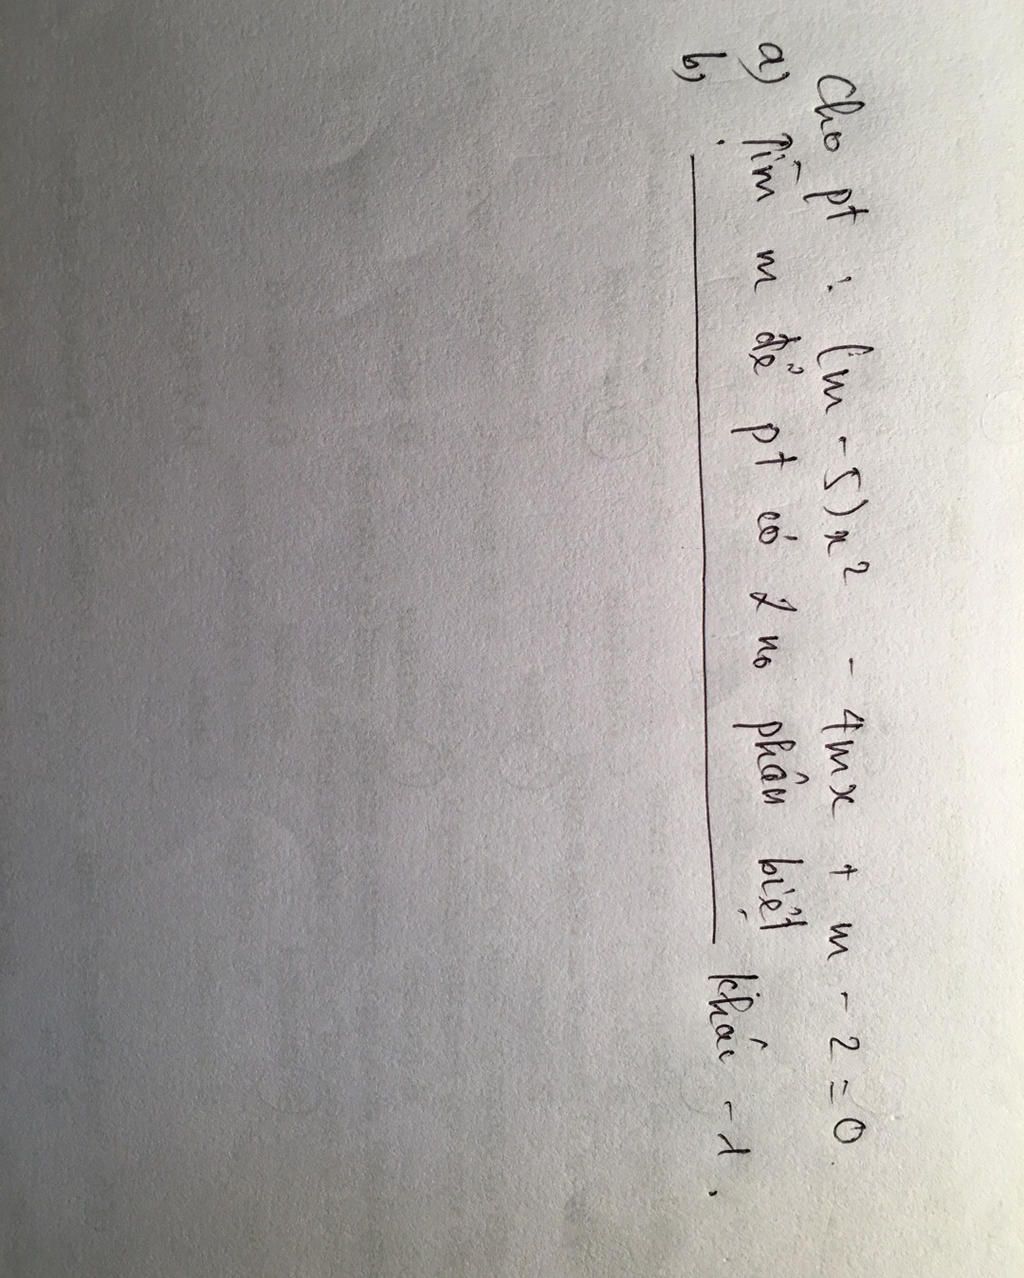 Cho pt : (m - 5)x² - 4mx + m - 2 = 0.
a) Tìm m để pt có 2 no phân biệt
b) khác -1.